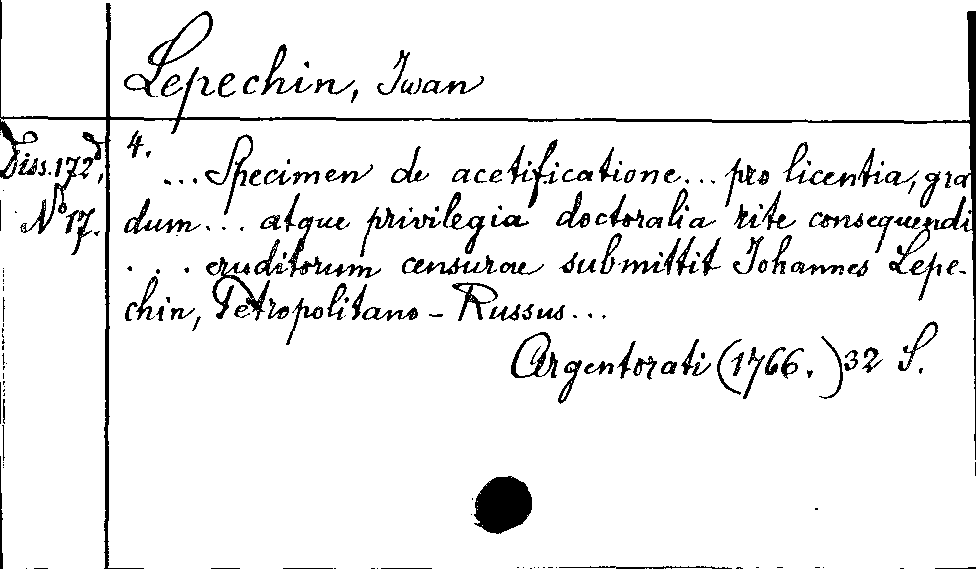 Lepechin, Iwan
Diss. 172d,
No 17.
4.
... Specimen de acetificatione... pro licentia, gra
dum... atque privilegia doctoralia rite consequendi
... eruditorum censurae submittit Johannes Lepe-
chin, Petropolitano - Russus...
Argentorati (1766.) 32 S.